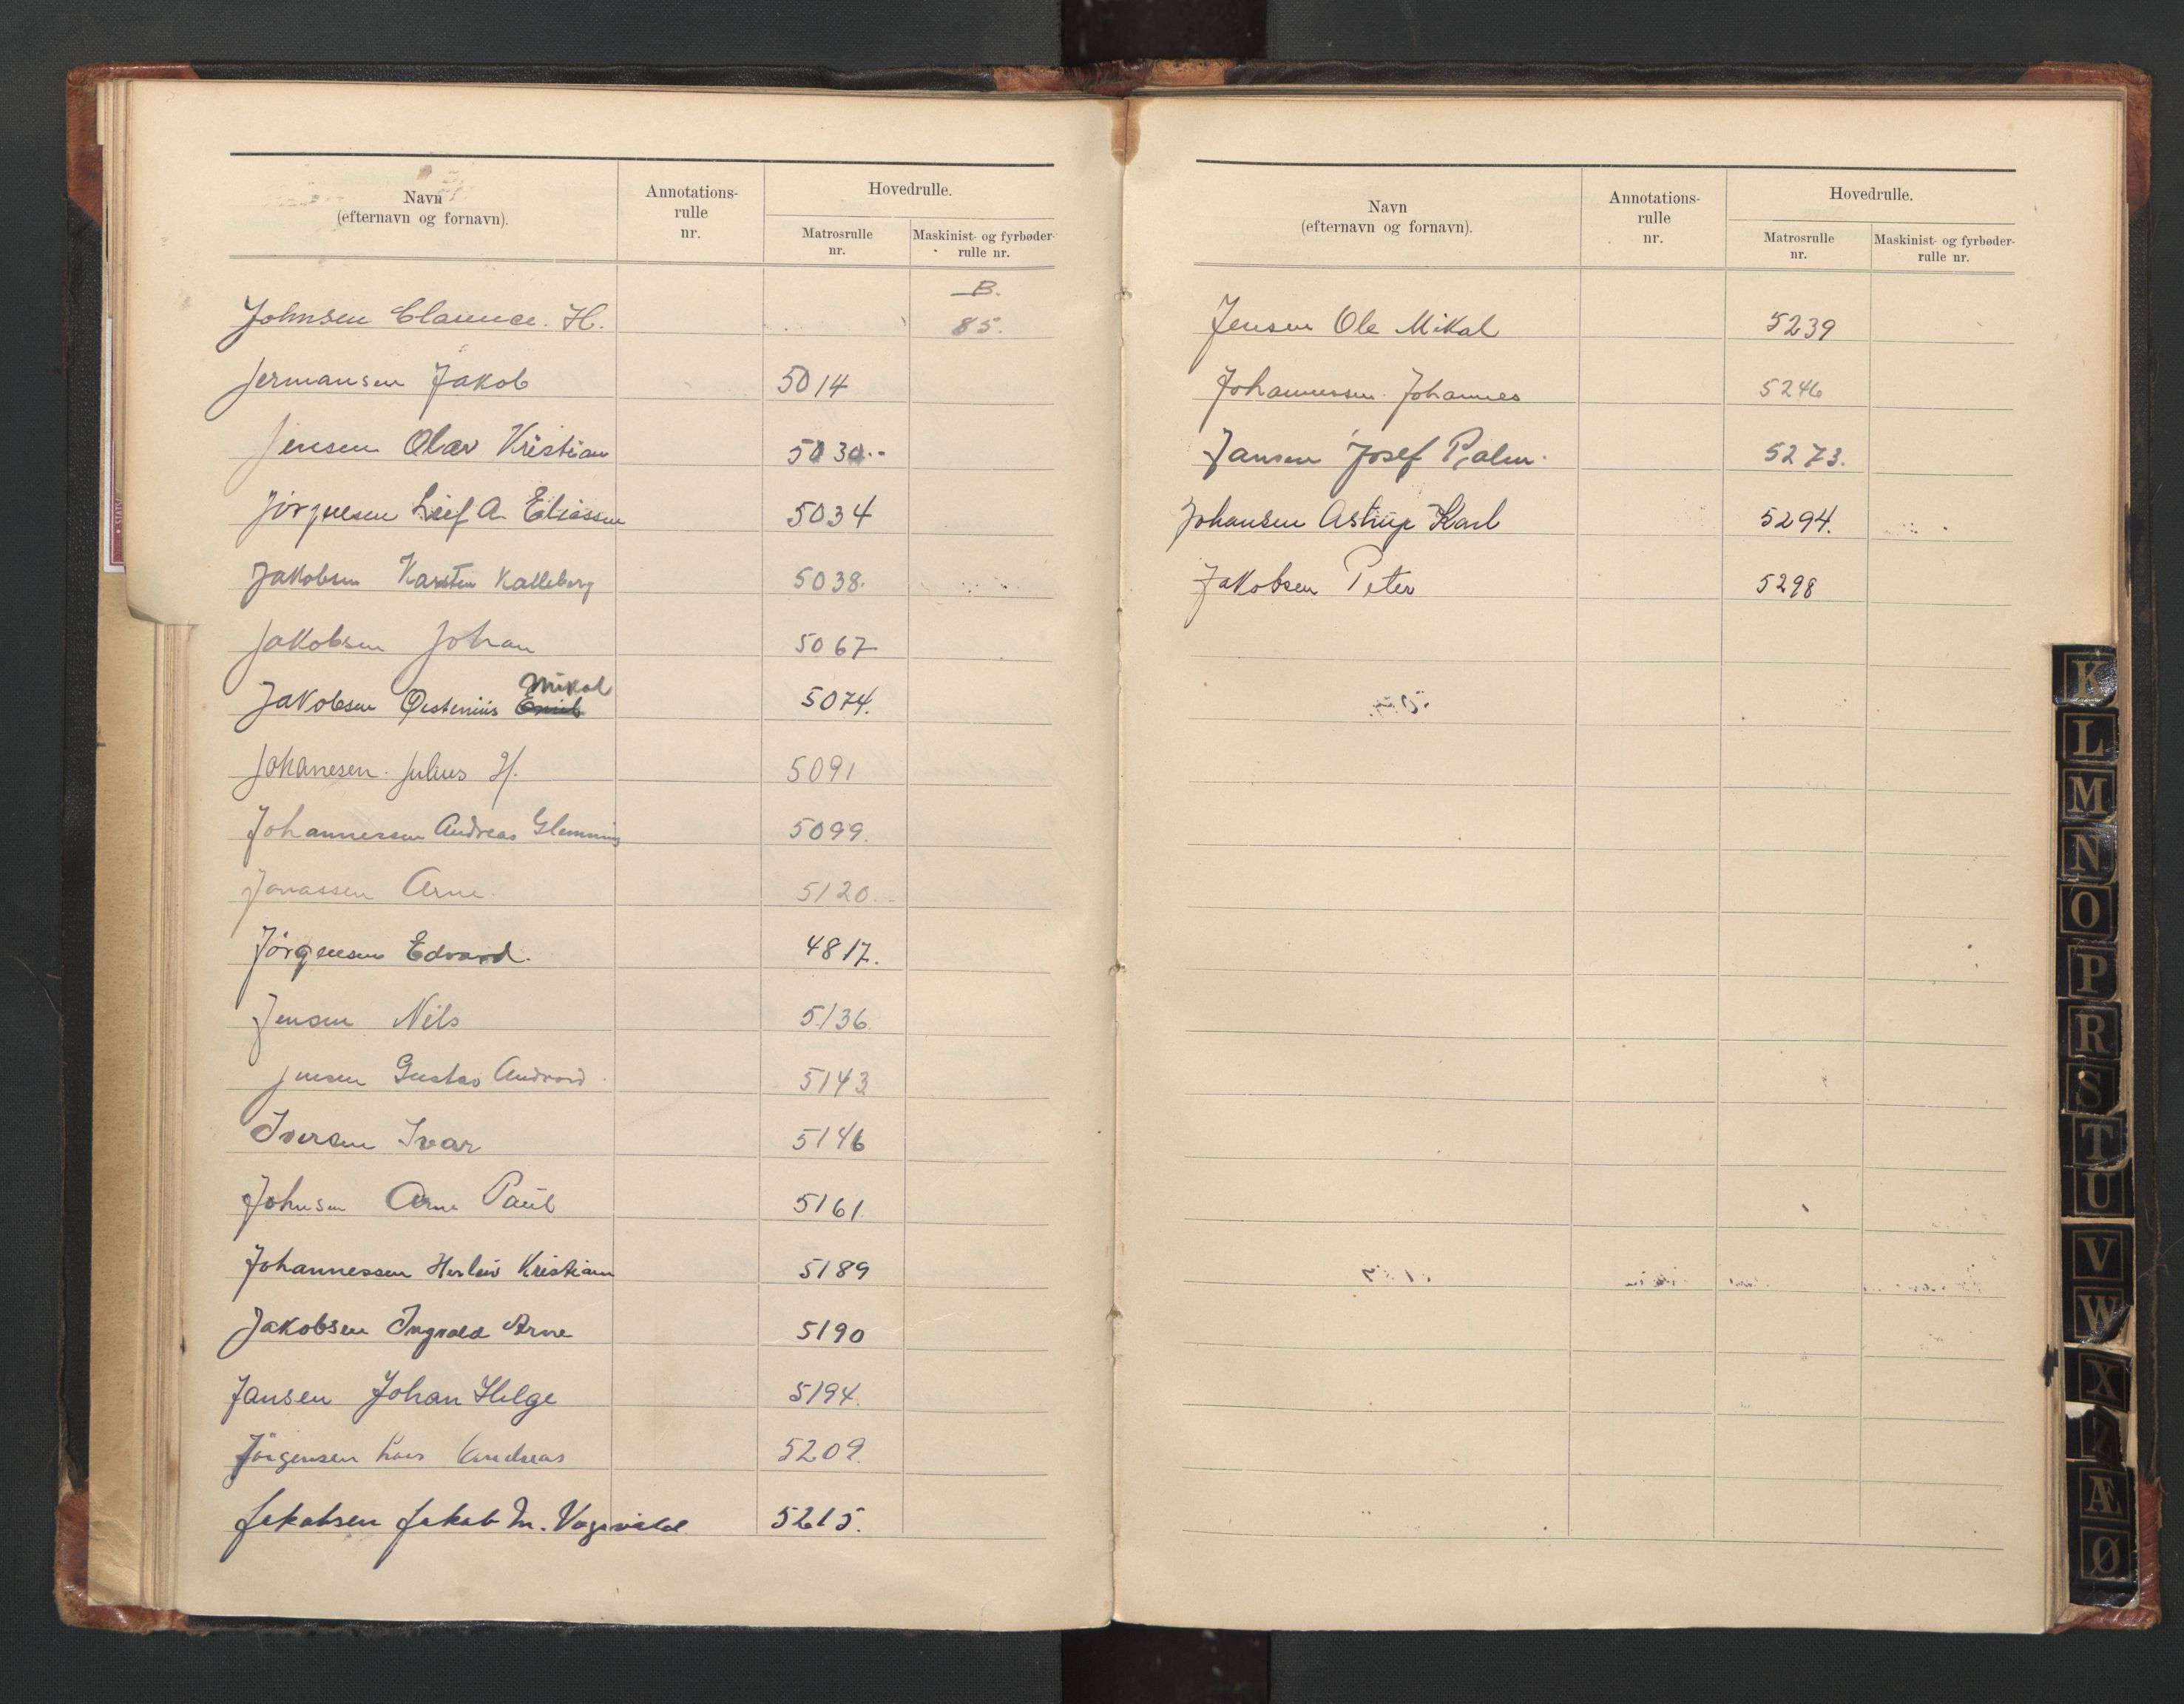 Navn
(efternavn og fornavn).
Annotations-
rulle
nr.
Hovedrulle.
Matrosrulle
nr.
Maskinist- og fyrbøder-
rulle nr.
B.
Johnsen Clarence. H. 85.
Jermansen Jakob 5014
Jensen Olav Kristian 5030
Jörgensen Leif A. Eliassen 5034
Jakobsen Karsten Kalleberg 5038.
Jakobsen Johan 5067
Mikal
Jakobsen Oestenius Emil 5074.
Johanesen. Julius H. 5091
Johannessen Andreas Glemming 5099.
Jonassen Arne. 5120.
Jörgensen Edvard. 4817.
Jensen Nils 5136.
Jensen Gustav 5143
Iversen Ivar 5146
Johnsen Arne Paul 5161.
Johannessen Herleiv Kristian 5189
Jakobsen Ingvald Arne 5190
Jansen Johan Helge 5194.
Jörgensen Lars Andreas 5209.
Jakobsen Jakob M. Vagnvald 5215.
Navn
(efternavn og fornavn).
Annotations-
rulle
nr.
Hovedrulle.
Matrosrulle
nr.
Maskinist- og fyrbøder-
rulle nr.
Jensen Ole Mikal 5239
Johannessen Johannes 5246
Jansen Josef Palm. 5273.
Johansen Astrup Karl 5294.
Jakobsen Peter 5298
K
L
M
N
O
P
R
S
T
U
V
W
X
Z
Æ
Ø